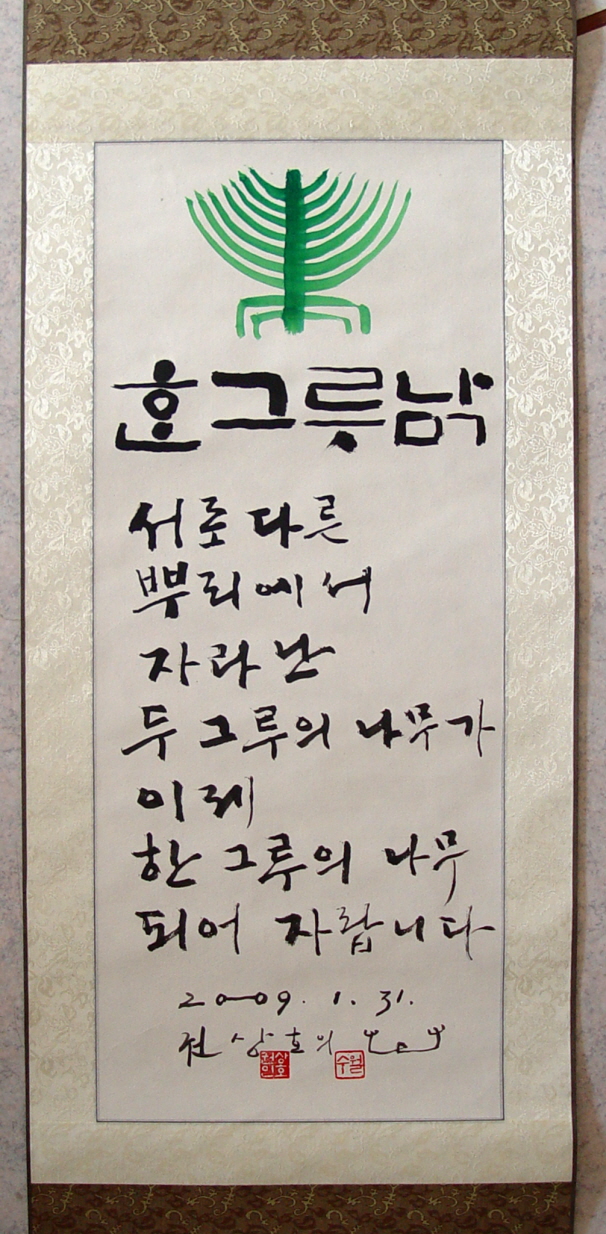 서로 다른
뿌리에서
자라난
두 그루의 나무가
이제
한 그루의 나무
되어 자랍니다
2009. 1. 31.
권상호의
수월